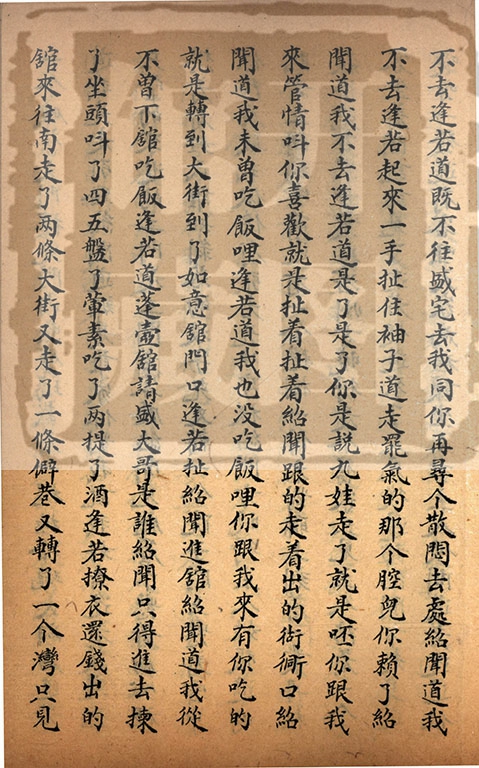 不去逢若道既不往盛宅去我同你再尋个散悶去處紹聞道我
不去逢若起來一手扯住袖子道走罷氣的那个腔兒你賴了紹
聞道我不去逢若道是了是了你是説九娃走了就是呸你跟我
來管情呌你喜歡就是扯着扯着紹聞跟的走着出的衚衕口紹
聞道我未曾吃飯哩逢若道我也没吃飯哩你跟我來有你吃的
就是轉到大街到了如意舘門口逢若扯紹聞進舘紹聞道我從
不曽下舘吃飯逢若道蓬壺舘請盛大哥是誰紹聞只得進去揀
了坐頭呌了四五盤了葷素吃了两提了酒逢若撩衣還錢出的
舘來往南走了两條大街又走了一條僻巷又轉了一个灣只見